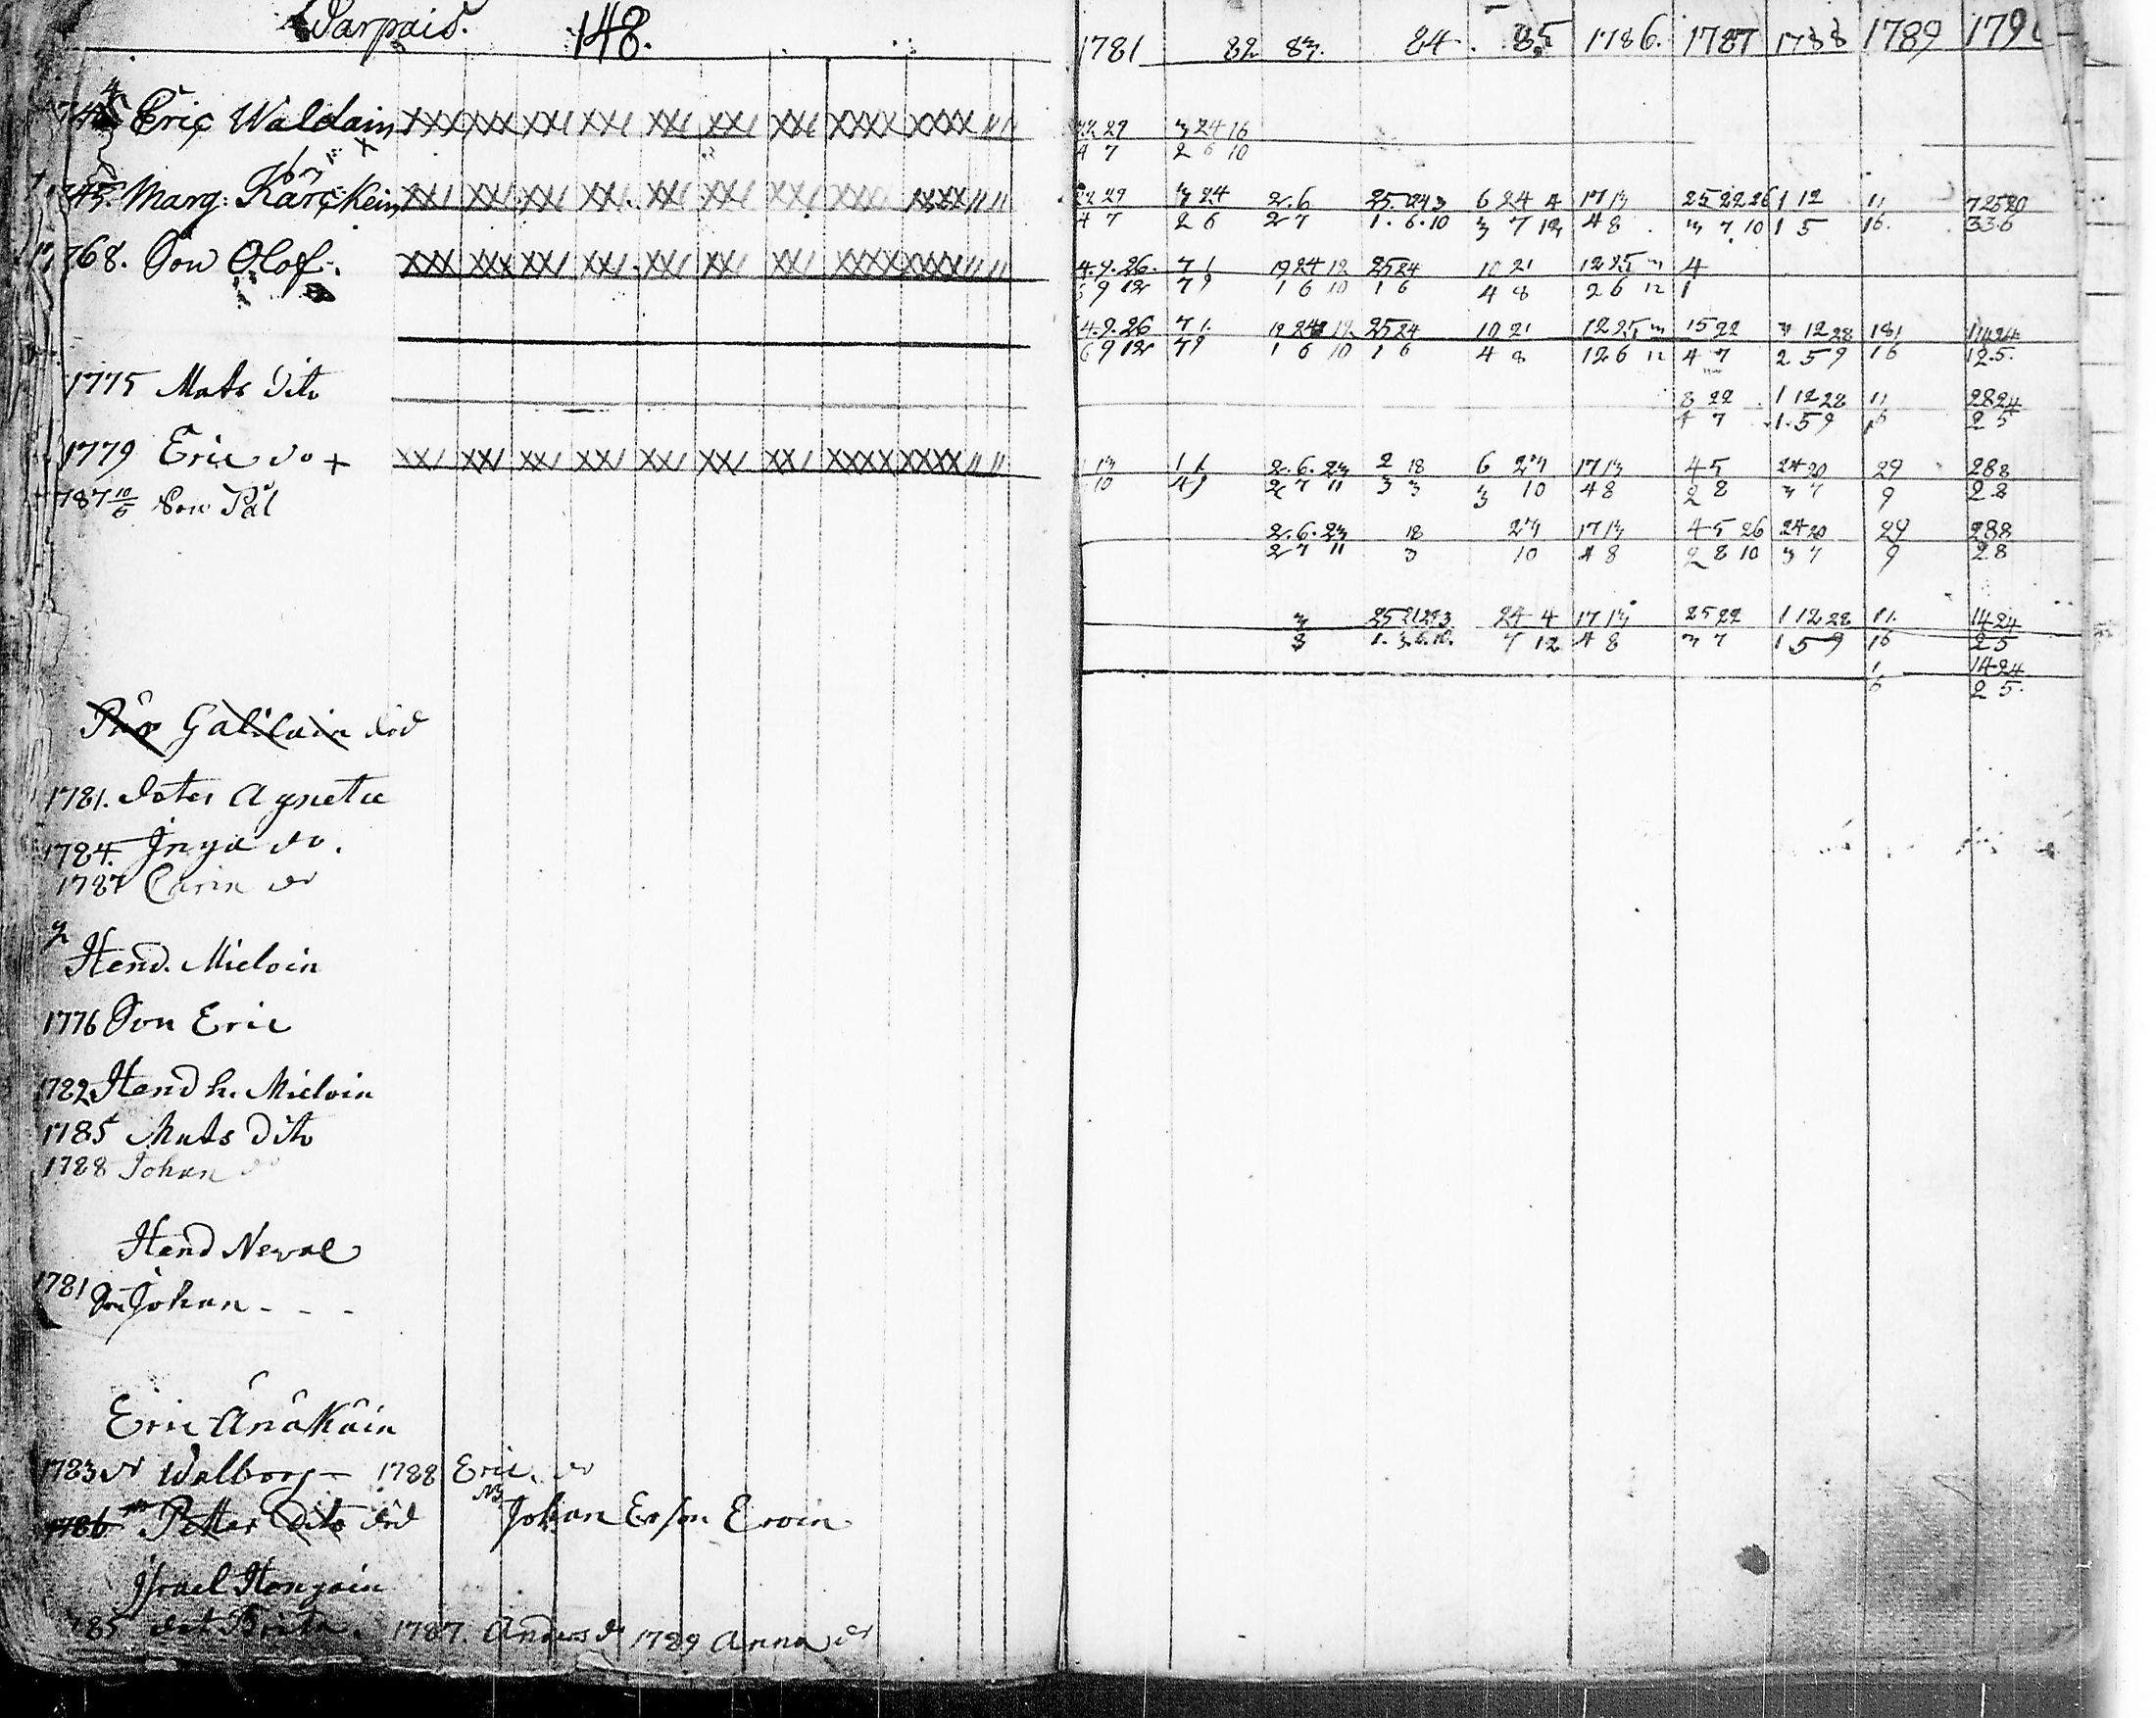 Warpais. 148.
1781 82 83. 84. 85 1786. 1787 1788 1789 179
Eric Waldain
22 29 3 24 16
4 7 2 6 10
Marg: Kärckein
22 29 3 24 2.6 25. 24 3 6 24 4 17 13 25 22 26 1 12 11
4 7 2 6 2 7 1. 6. 10 3 7 12 4 8 3 7 10 1 5 16.
768. Son Olof.
4. 9. 26. 7 1 19 24 12 25 24 10 21 12 25 4
9 12 7 9 1 6 10 1 6 4 8 2 6 12 1
4. 9. 26 7 1. 19 24 12 25 24 10 21 12 25 15 22 3 12 28 181 14 24
6 9 12 7 9 1 6 10 1 6 4 8 12 6 12 4 7 2 5 9 16 12.5.
1775 Mats dito
8 22 1 12 28 11 28 24
4 7 1. 5 9 2 5
1779 Eric do +
13 11 2. 6. 23 2 18 6 27 17 13 4 5 24 20 29 28 8
10 4 9 2 7 11 3 3 3 10 4 8 2 8 3 7 9 2 8
787 10/6 Son Pål
2. 6. 23 18 27 17 13 4 5 26 24 20 29 28 8
2 7 11 3 10 4 8 2 8 10 3 7 9 2 8
3 25 21 24 3 24 4 17 13 25 22 1 12 28 11. 14 24
3 1. 3. 6. 10. 7 12 4 8 3 7 1 5 9 16 2 5
1 14 24
6 2 5.
Pär Galilain död
1781. doter Agneta
1784. Inga do.
1787 Carin do
Hend. Mieloin
1776 Son Eric
1782 Hend h. Mieloin
1785 Mats dito
1788 Johan do
Hend Neval
1781 Son Johan - - -
Eric Änäkäin
1783 dr Walborg - 1788 Eric. do
1786 Petter dito död Johan Erson Eroin
Israel Hongain
785 dot Brita. 1787. Anders do 1789 Anna do